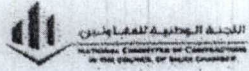 اللجنة الوطنية للمقاولين
NATIONAL COMMITTEE OF CONTRACTORS
IN THE COUNCIL OF SAUDI CHAMBER